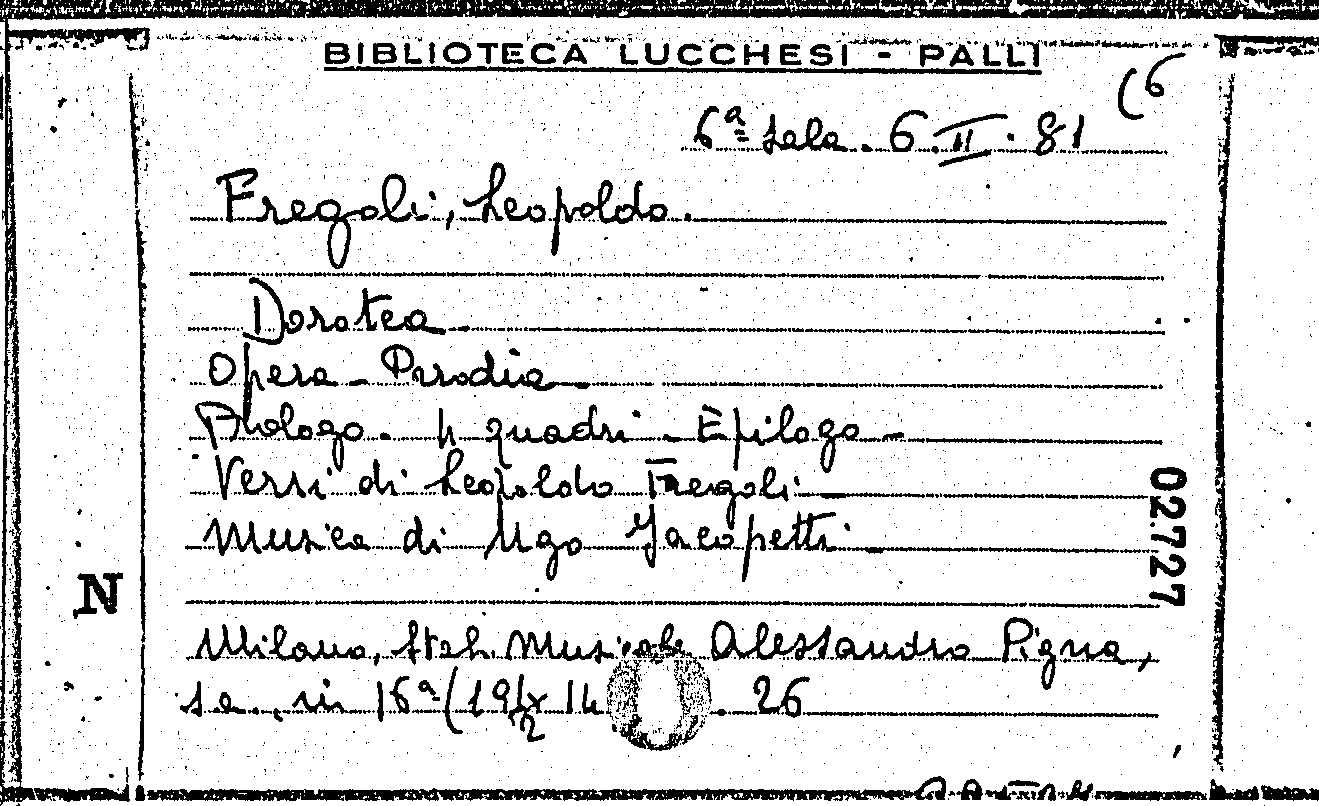 BIBLIOTECA LUCCHESI - PALLI
(6
6ª sala. 6. II. 81
Fregoli, Leopoldo.
Dorotea -
Opera - Parodia -
Prologo - 4 quadri - Epilogo -
Versi di Leopoldo Fregoli -
Musica di Ugo Jacopetti -
02727
N
Milano, Stab. Musicale Alessandro Pigna,
s.a., in 16ª (19 ½ x 14 . 26